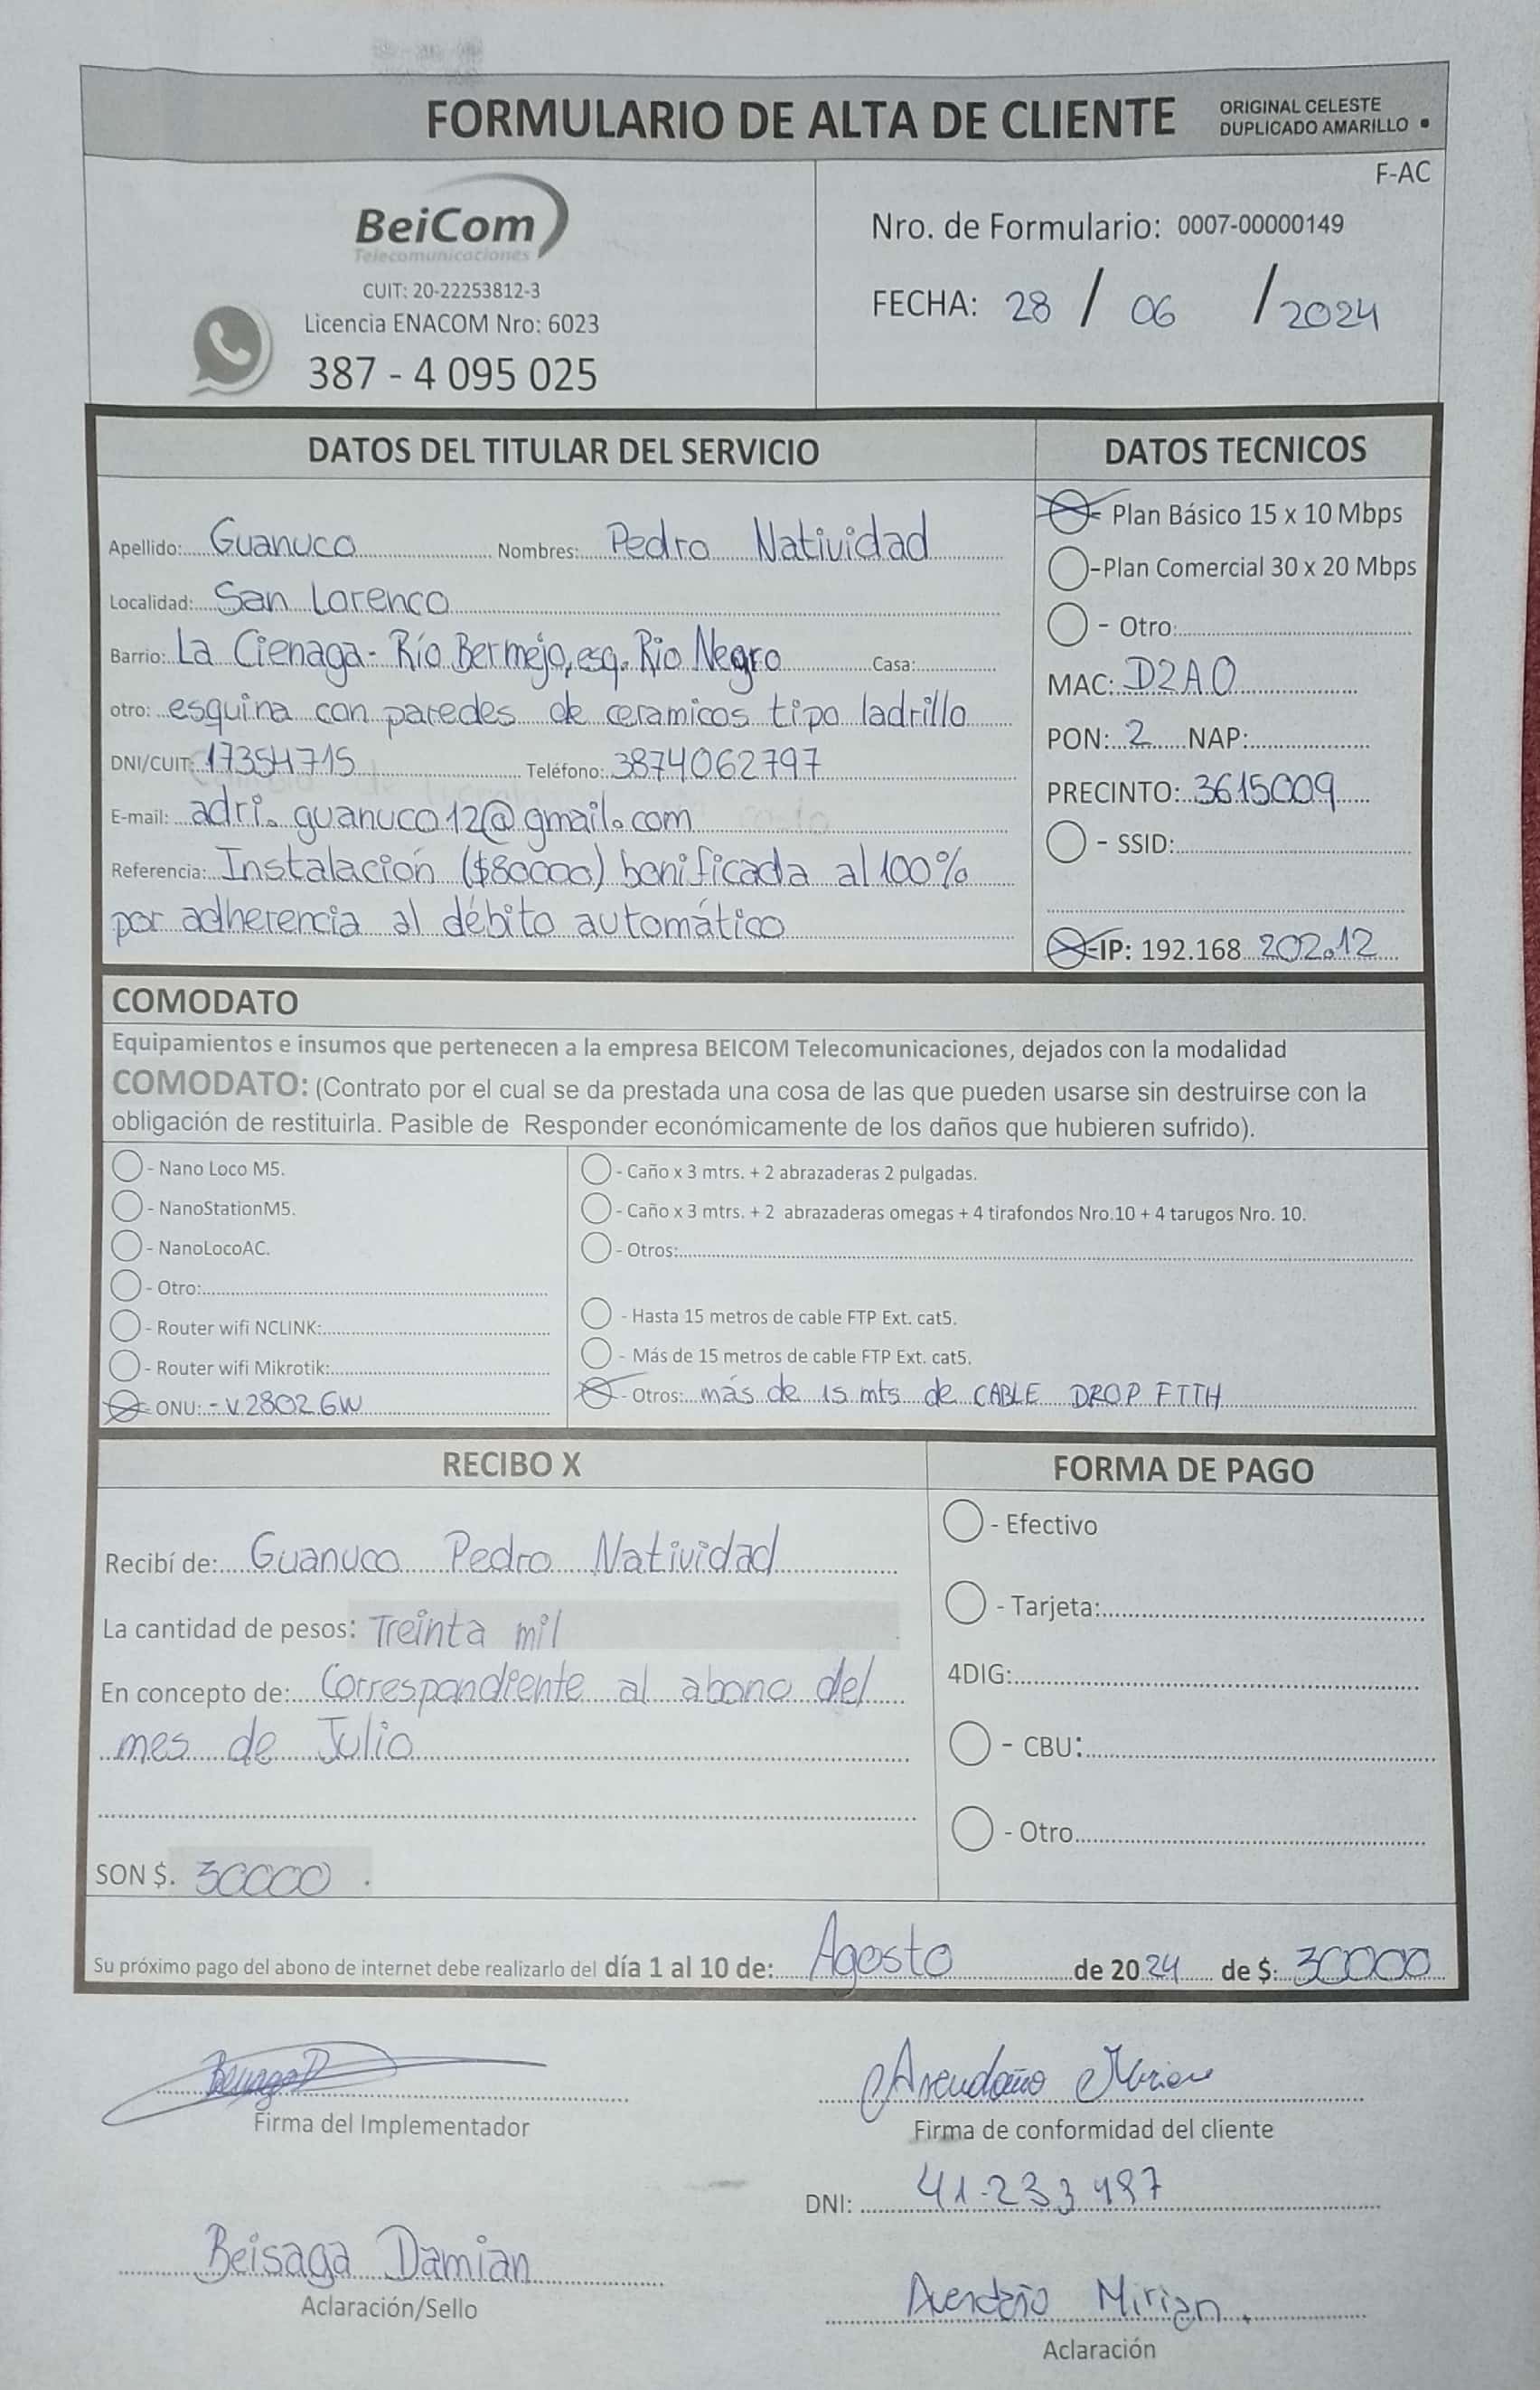 FORMULARIO DE ALTA DE CLIENTE
ORIGINAL CELESTE
DUPLICADO AMARILLO
F-AC
BeiCom
Telecomunicaciones
CUIT: 20-22253812-3
Licencia ENACOM Nro: 6023
387 - 4 095 025
Nro. de Formulario: 0007-00000149
FECHA: 28 / 06 / 2024
DATOS DEL TITULAR DEL SERVICIO
Apellido: Guanuco Nombres: Pedro Natividad
Localidad: San Lorenco
Barrio: La Cienaga - Río Bermejo, esq. Rio Negro Casa:
otro: esquina con paredes de ceramicos tipo ladrillo
DNI/CUIT: 17354715 Teléfono: 3874062797
E-mail: adri.guanuco12@gmail.com
Referencia: Instalación ($80000) bonificada al 100%
por adherencia al débito automático
DATOS TECNICOS
- Plan Básico 15 x 10 Mbps
-Plan Comercial 30 x 20 Mbps
- Otro:
MAC: D2A0
PON: 2 NAP:
PRECINTO: 3615009
- SSID:
-IP: 192.168 202.12
COMODATO
Equipamientos e insumos que pertenecen a la empresa BEICOM Telecomunicaciones, dejados con la modalidad
COMODATO: (Contrato por el cual se da prestada una cosa de las que pueden usarse sin destruirse con la
obligación de restituirla. Pasible de Responder económicamente de los daños que hubieren sufrido).
- Nano Loco M5.
- NanoStationM5.
- NanoLocoAC.
- Otro:
- Router wifi NCLINK:
- Router wifi Mikrotik:
- ONU: - V2802GW
- Caño x 3 mtrs. + 2 abrazaderas 2 pulgadas.
- Caño x 3 mtrs. + 2 abrazaderas omegas + 4 tirafondos Nro.10 + 4 tarugos Nro. 10.
- Otros:
- Hasta 15 metros de cable FTP Ext. cat5.
- Más de 15 metros de cable FTP Ext. cat5.
- Otros: más de 15 mts de CABLE DROP FTTH
RECIBO X
Recibí de: Guanuco Pedro Natividad
La cantidad de pesos: Treinta mil
En concepto de: Correspondiente al abono del
mes de Julio
SON $. 30000
FORMA DE PAGO
- Efectivo
- Tarjeta:
4DIG:
- CBU:
- Otro
Su próximo pago del abono de internet debe realizarlo del día 1 al 10 de: Agosto de 2024 de $: 30000
Beisaga D
Firma del Implementador
Avendaño Mirian
Firma de conformidad del cliente
DNI: 41.233 497
Beisaga Damian
Aclaración/Sello
Avendaño Mirian.
Aclaración